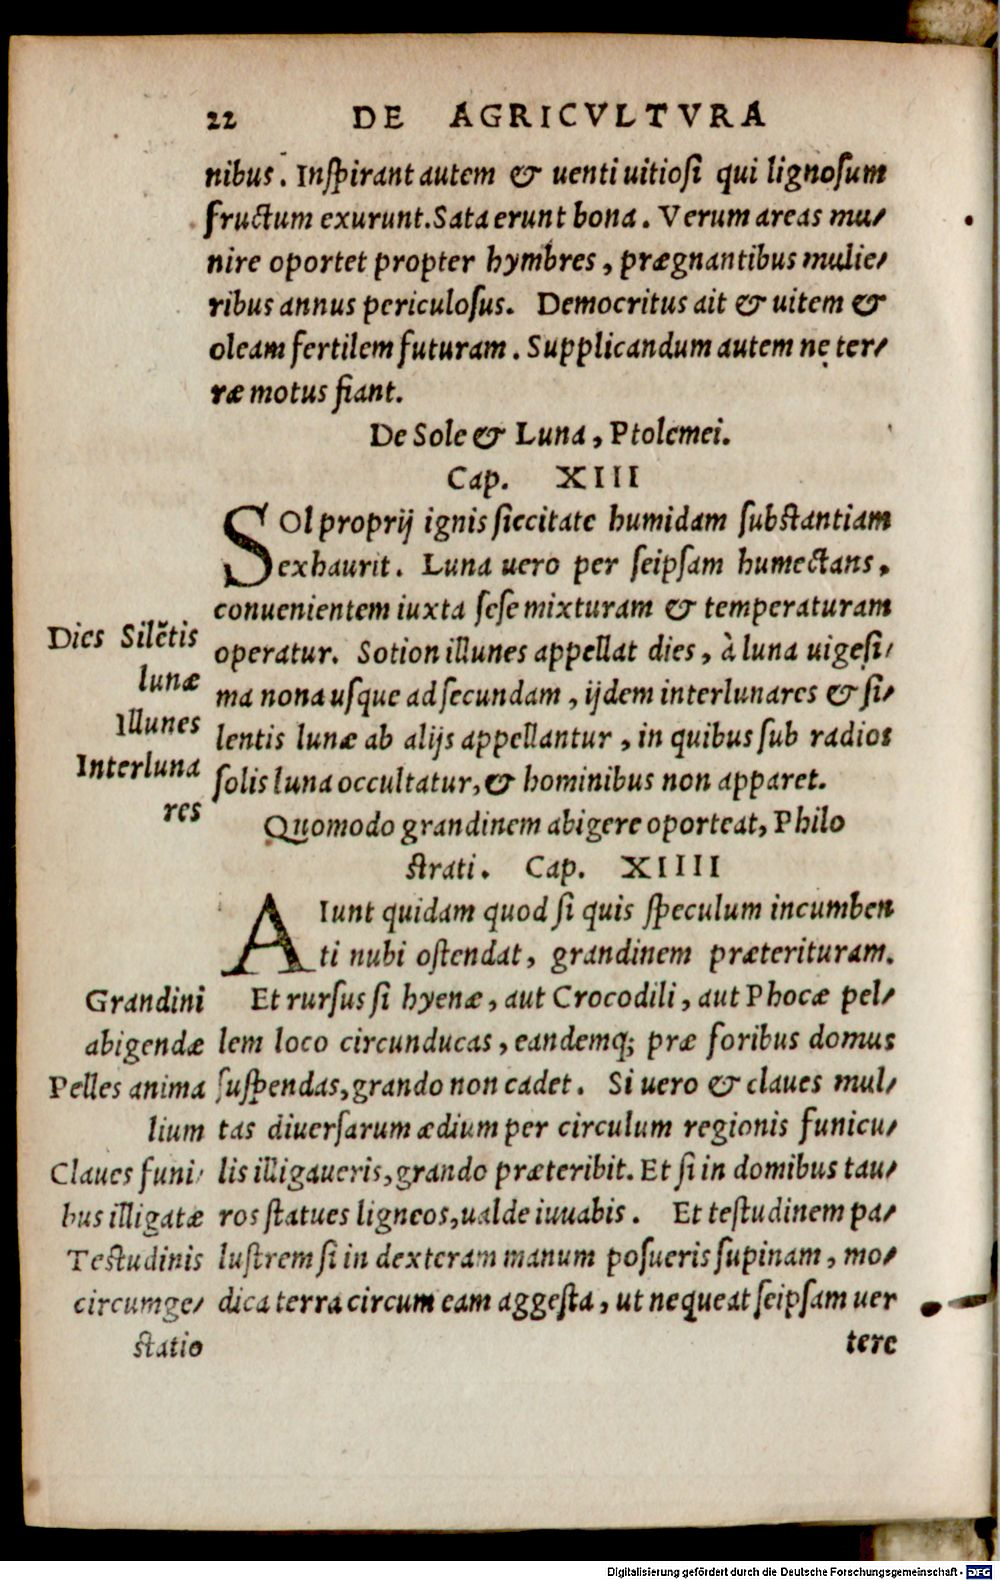 22 DE AGRICVLTVRA
nibus. Inspirant autem & uenti uitiosi qui lignosum
fructum exurunt. Sata erunt bona. Verum areas mu/
nire oportet propter hymbres, prægnantibus mulie/
ribus annus periculosus. Democritus ait & uitem &
oleam fertilem futuram. Supplicandum autem ne ter/
ræ motus fiant.
De Sole & Luna, Ptolemei.
Cap. XIII
SOl proprij ignis siccitate humidam substantiam
exhaurit. Luna uero per seipsam humectans,
conuenientem iuxta sese mixturam & temperaturam
operatur. Sotion illunes appellat dies, à luna uigesi/
ma nona usque ad secundam, ijdem interlunares & si/
lentis lunæ ab alijs appellantur, in quibus sub radios
solis luna occultatur, & hominibus non apparet.
Dies Silẽtis
lunæ
Illunes
Interluna
res
Quomodo grandinem abigere oporteat, Philo
strati. Cap. XIIII
AIunt quidam quod si quis speculum incumben
ti nubi ostendat, grandinem præterituram.
Et rursus si hyenæ, aut Crocodili, aut Phocæ pel/
lem loco circunducas, eandemq; præ foribus domus
suspendas, grando non cadet. Si uero & claues mul/
tas diuersarum ædium per circulum regionis funicu/
lis illigaueris, grando præteribit. Et si in domibus tau/
ros statues ligneos, ualde iuuabis. Et testudinem pa/
lustrem si in dexteram manum posueris supinam, mo/
dica terra circum eam aggesta, ut nequeat seipsam uer
tere
Grandini
abigendæ
Pelles anima
lium
Claues funi/
bus illigatæ
Testudinis
circumge/
statio
Digitalisierung gefördert durch die Deutsche Forschungsgemeinschaft - DFG